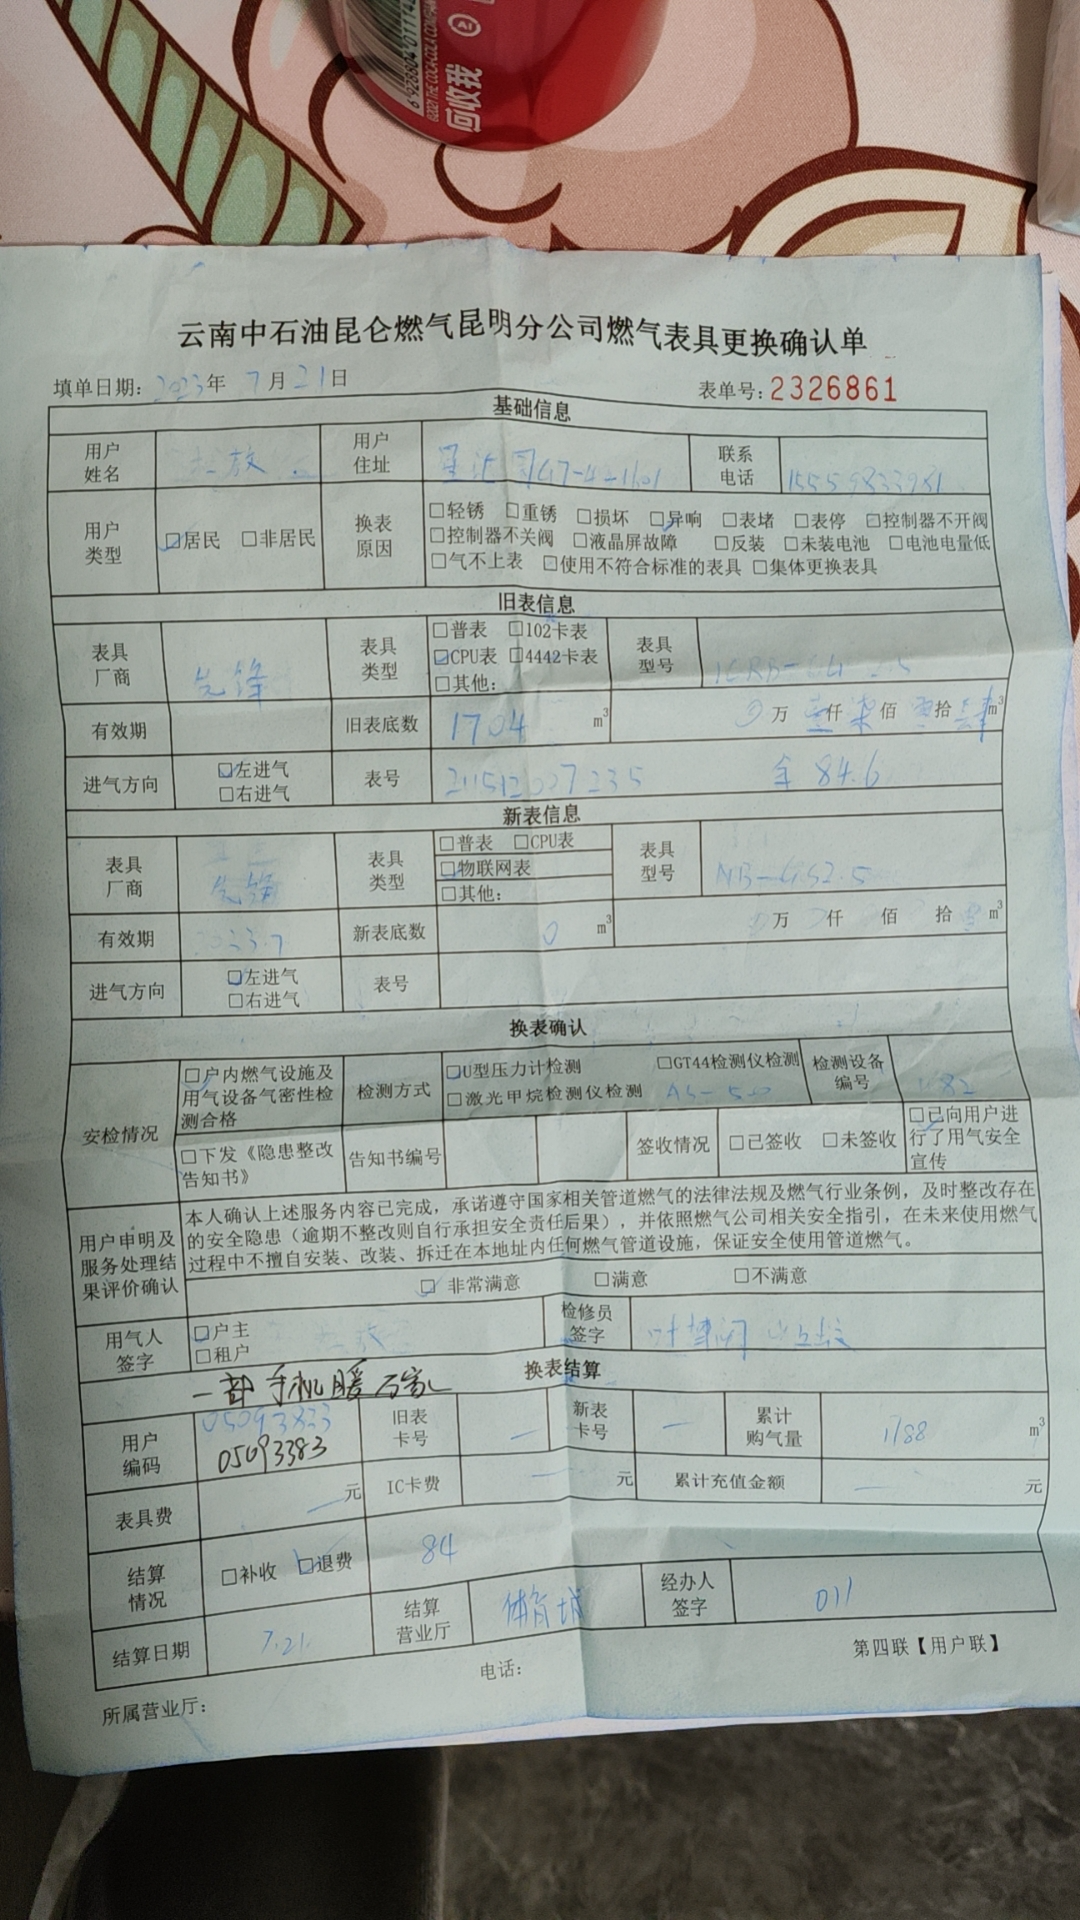 回收我
云南中石油昆仑燃气昆明分公司燃气表具更换确认单
填单日期: 2023年 7月21日 表单号: 2326861
基础信息
用户姓名 放 用户住址 联系电话
用户类型 □居民 □非居民 换表原因 □轻锈 □重锈 □损坏 □异响 □表堵 □表停 □控制器不开阀
□控制器不关阀 □液晶屏故障 □反装 □未装电池 □电池电量低
□气不上表 □使用不符合标准的表具 □集体更换表具
旧表信息
表具厂商 先锋 表具类型 □普表 □102卡表 表具型号
□CPU表 □4442卡表
□其他:
有效期 旧表底数 1704 m³ 万 壹仟 柒佰 零拾 肆 m³
进气方向 □左进气 表号 84.6
□右进气
新表信息
表具厂商 先锋 表具类型 □普表 □CPU表 表具型号
□物联网表
□其他:
有效期 2023.7 新表底数 0 m³ 万 仟 佰 拾 m³
进气方向 □左进气 表号
□右进气
换表确认
安检情况 □户内燃气设施及用气设备气密性检测合格 检测方式 □U型压力计检测 □GT44检测仪检测 检测设备编号
□激光甲烷检测仪检测
□下发《隐患整改告知书》 告知书编号 签收情况 □已签收 □未签收 □已向用户进行了用气安全宣传
用户申明及服务处理结果评价确认 本人确认上述服务内容已完成，承诺遵守国家相关管道燃气的法律法规及燃气行业条例，及时整改存在
的安全隐患（逾期不整改则自行承担安全责任后果），并依照燃气公司相关安全指引，在未来使用燃气
过程中不擅自安装、改装、拆迁在本地址内任何燃气管道设施，保证安全使用管道燃气。
□ 非常满意 □满意 □不满意
用气人签字 □户主 检修员签字
□租户
换表结算
一部手机暖
用户编码 05093383 旧表卡号 — 新表卡号 — 累计购气量 1188 m³
表具费 — 元 IC卡费 — 元 累计充值金额 — 元
结算情况 □补收 □退费 84
结算日期 7.21 结算营业厅 体育城 经办人签字 011
第四联【用户联】
所属营业厅: 电话: